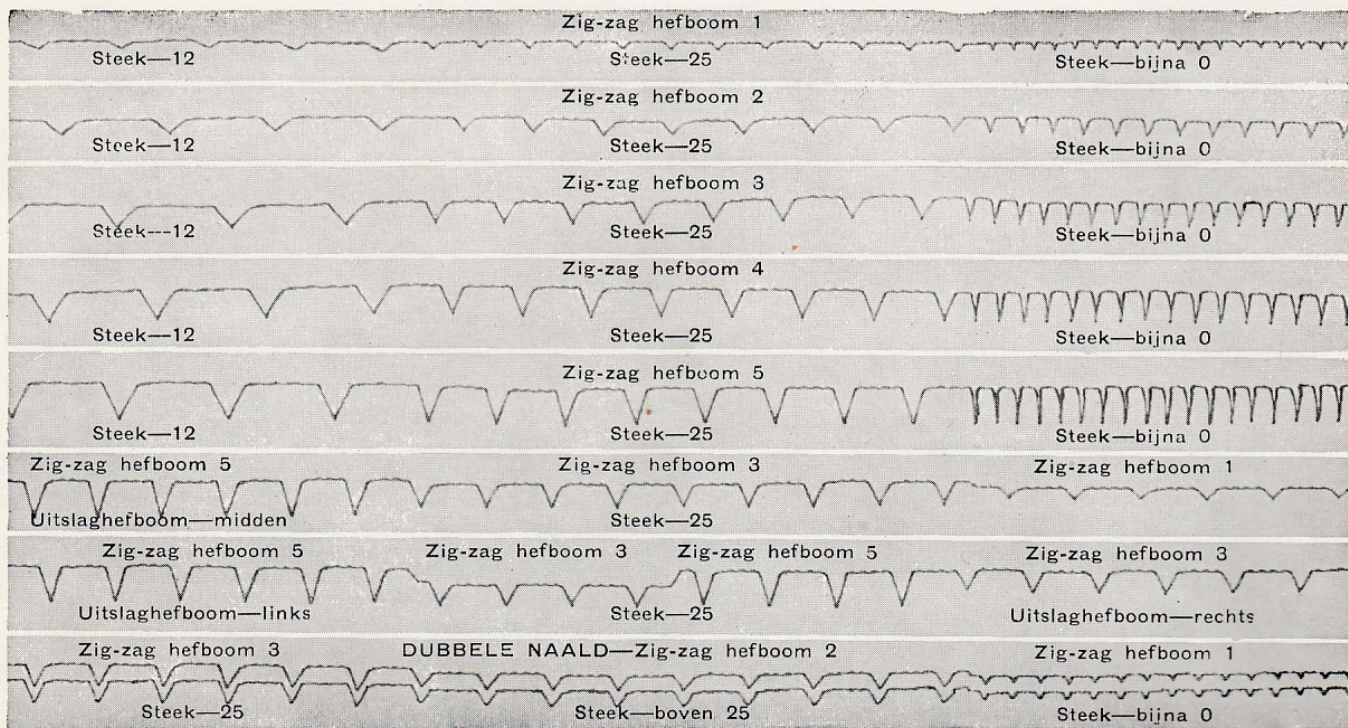 Zig-zag hefboom 1
Steek—12 Steek—25 Steek—bijna 0
Zig-zag hefboom 2
Steek—12 Steek—25 Steek—bijna 0
Zig-zag hefboom 3
Steek---12 Steek—25 Steek—bijna 0
Zig-zag hefboom 4
Steek—12 Steek—25 Steek—bijna 0
Zig-zag hefboom 5
Steek—12 Steek—25 Steek—bijna 0
Zig-zag hefboom 5 Zig-zag hefboom 3 Zig-zag hefboom 1
Uitslaghefboom—midden Steek—25
Zig-zag hefboom 5 Zig-zag hefboom 3 Zig-zag hefboom 5 Zig-zag hefboom 3
Uitslaghefboom—links Steek—25 Uitslaghefboom—rechts
Zig-zag hefboom 3 DUBBELE NAALD—Zig-zag hefboom 2 Zig-zag hefboom 1
Steek—25 Steek—boven 25 Steek—bijna 0